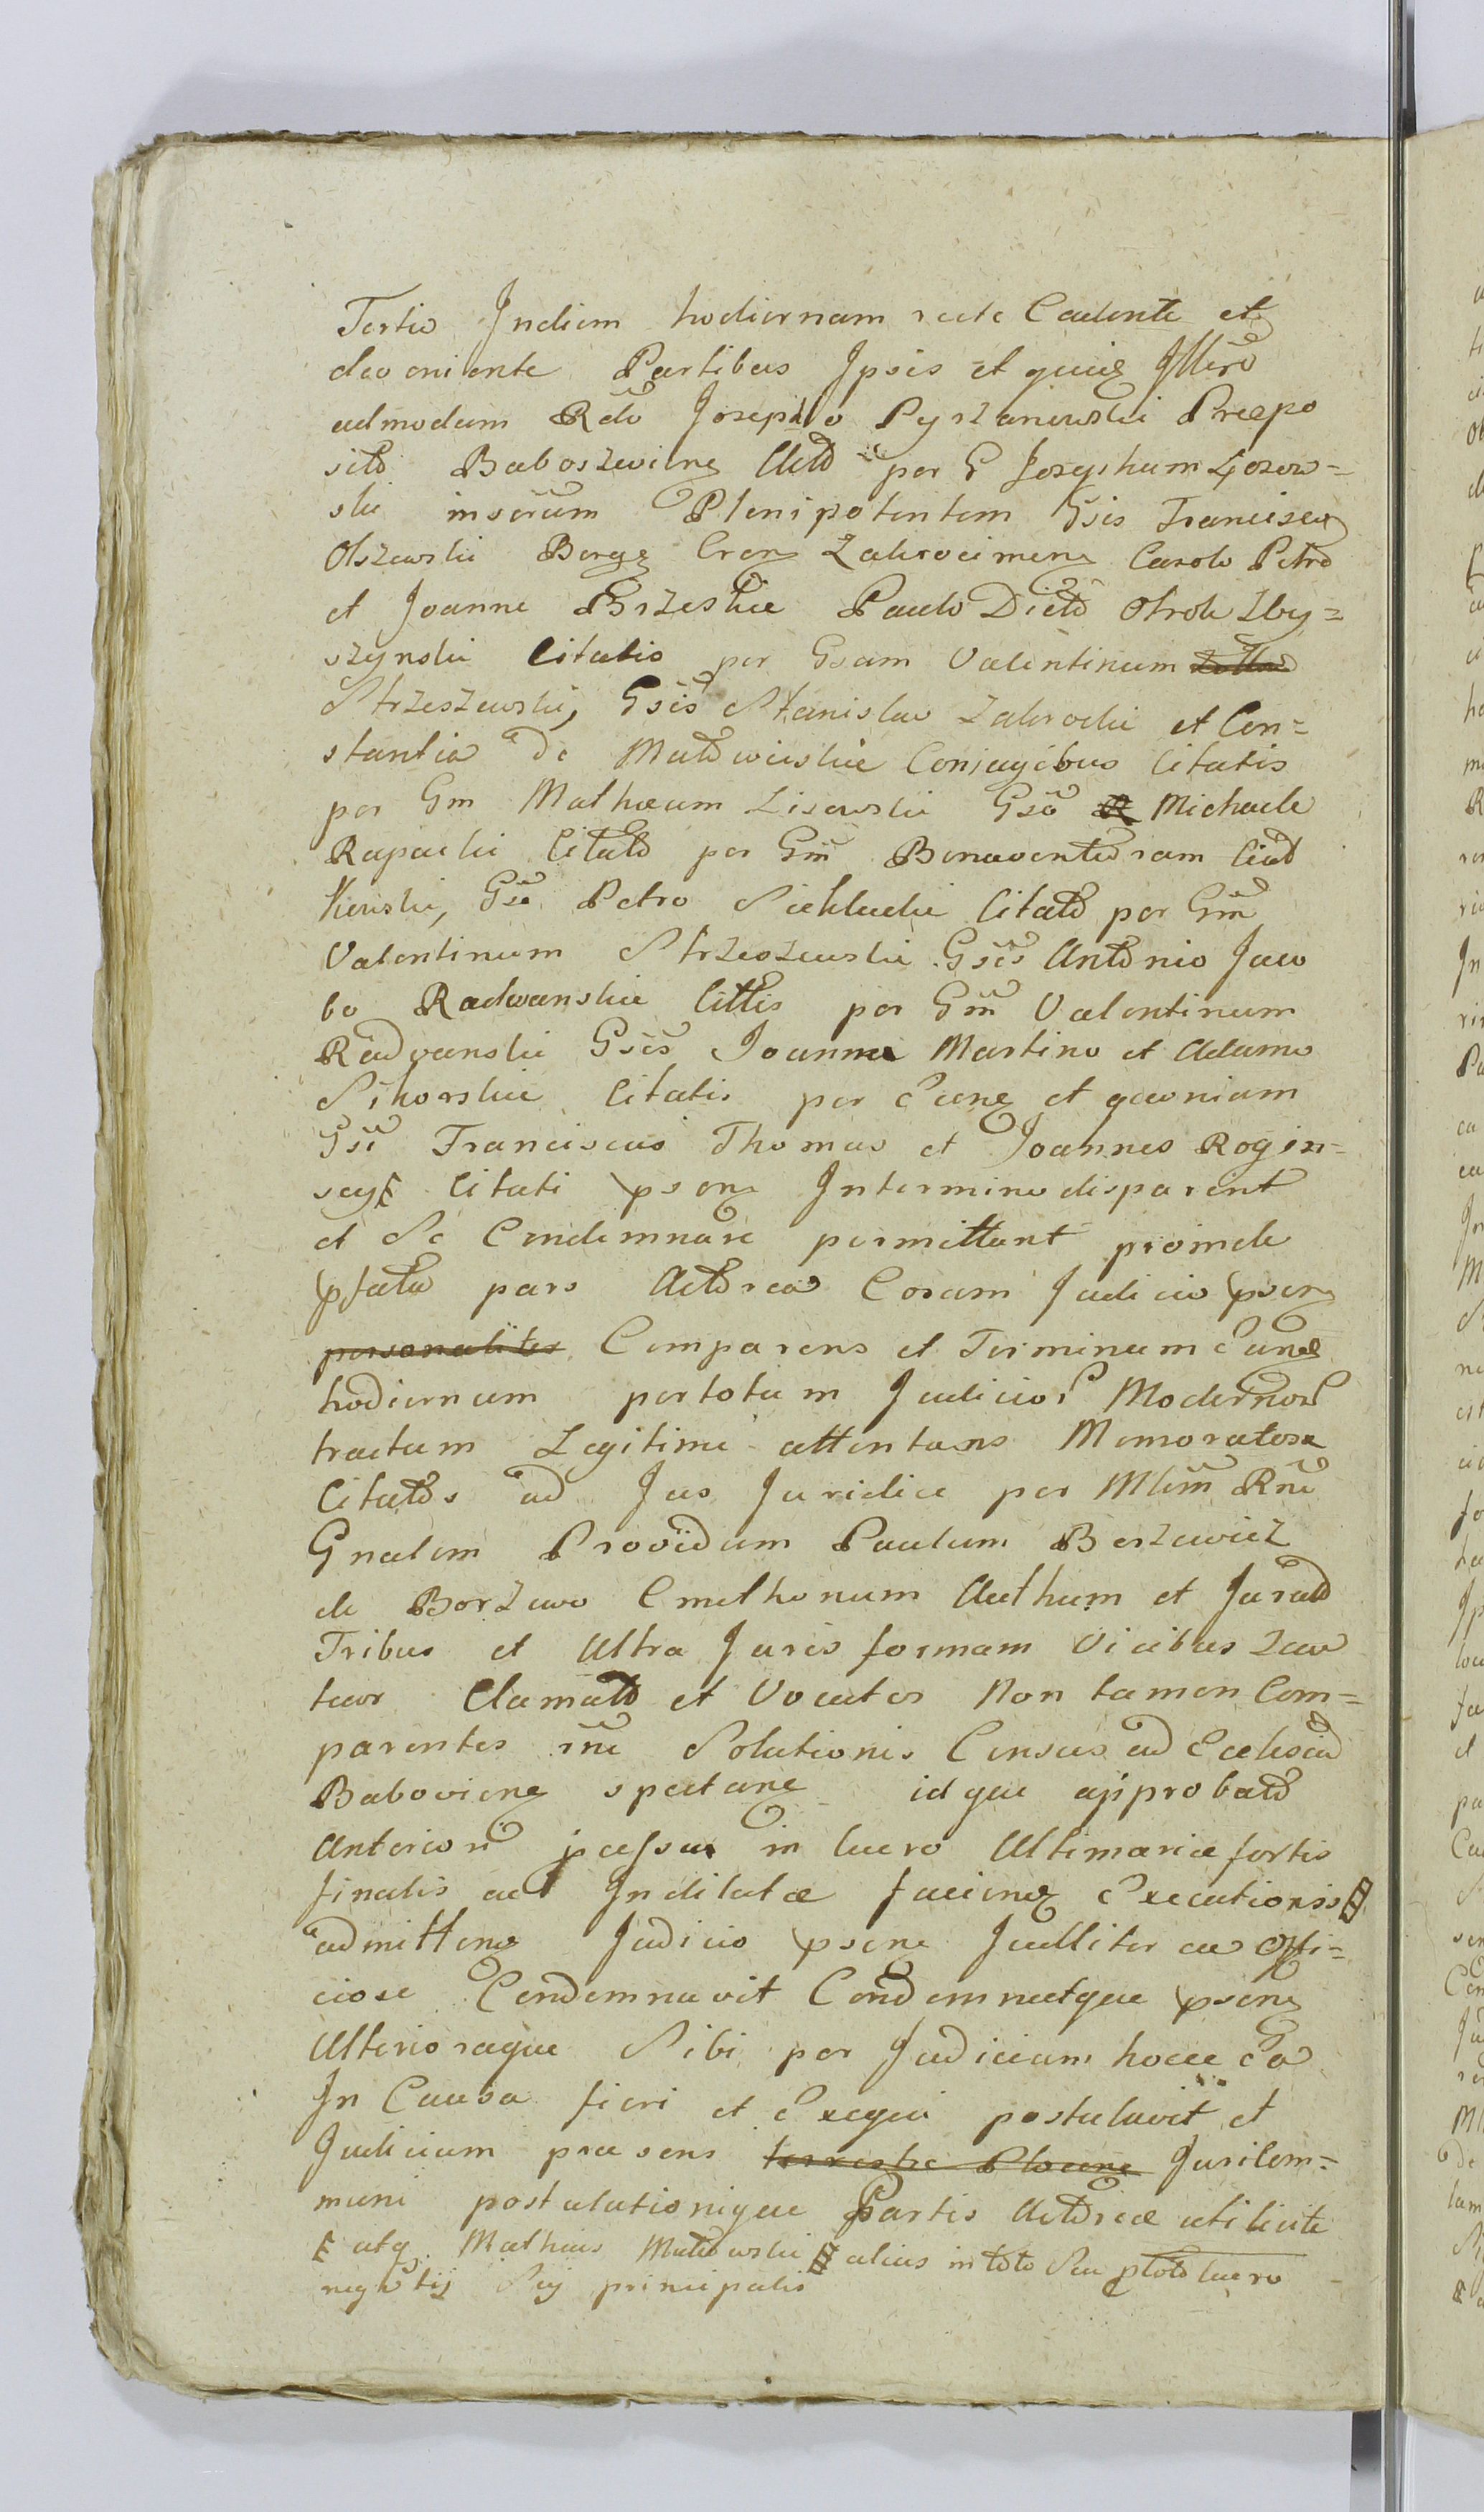 Tertio Indiem hodiernam recte Cadente et
deveniente Partibus Ipsis et quic Illero
admodum Rdo Josepho Pyrzanowski Præpo
sito Baboszevieng Acto per G Josephum Gozow=
ski inserum Plenipotentem Gsis Francisco
Olszewski Burgg Cren Zakrocimens Carolo Petro
et Joanne Brzeskie Paulo Dicto Otrok Zby=
szynski Citatis per Gsum Valentinum
Strzeszewski, Gsis Stanislao Zakrocki et Con=
stantia de Matowieskie Conjugibus Citatis
per Gm Mathæum Lisowski Gso Michaele
Rapacki Citato per Gm Bonaventuram Ciot
Kowski, Gso Petro Sieklucki Citato per Gm
Valentinum Strzeszewski Gsis Antonio Jaco
bo Radwanskie Cittis per Gm Valentinum
Radvanski Gsis Joanne Martino et Adamo
Sikorskie Citatis per Eung et quoniam
Gsi Franciscus Thomas et Joannes Rogin=
scy Citati psens Intermino disparent
et Se Condemnare permittunt proinde
pfata pars Actorea Coram Judicio psens
personaliter Comparens et Terminum Eung
hodiernum pertotum Judicior Modernor
tractum Legitime attentans Memoratos
Citatos ad Jus Juridice per Mlem Rni
Gnalem Providum Paulum Borzewicz
de Borzewo Cmethonum Authum et Jurato
Tribus et Ultra Juris formam Vicibus
Clamatos et Vocatos Non tamen Com=
parentes rne Solutionis Census ad Ecclesiad
Baboviens spectans idque approbato
Anteriori pcessu in lucro Ultimarie sortis
finalis ac Inditatæ faciens Executionis
admittens Judicio psens Judliter ac Offi=
ciose Condemnavit Condemnatque psens
Ulterioraque Sibi per Judicium hocce Ea
In Causa fieri et Exequi postulavit et
Judicium præsens terrestre Plocens Jurilom=
muni postulationique Partis Actoreæ utilicite
atq Mathias Matowski alias in toto Seu ptoto lucro
negotij Sui principalis